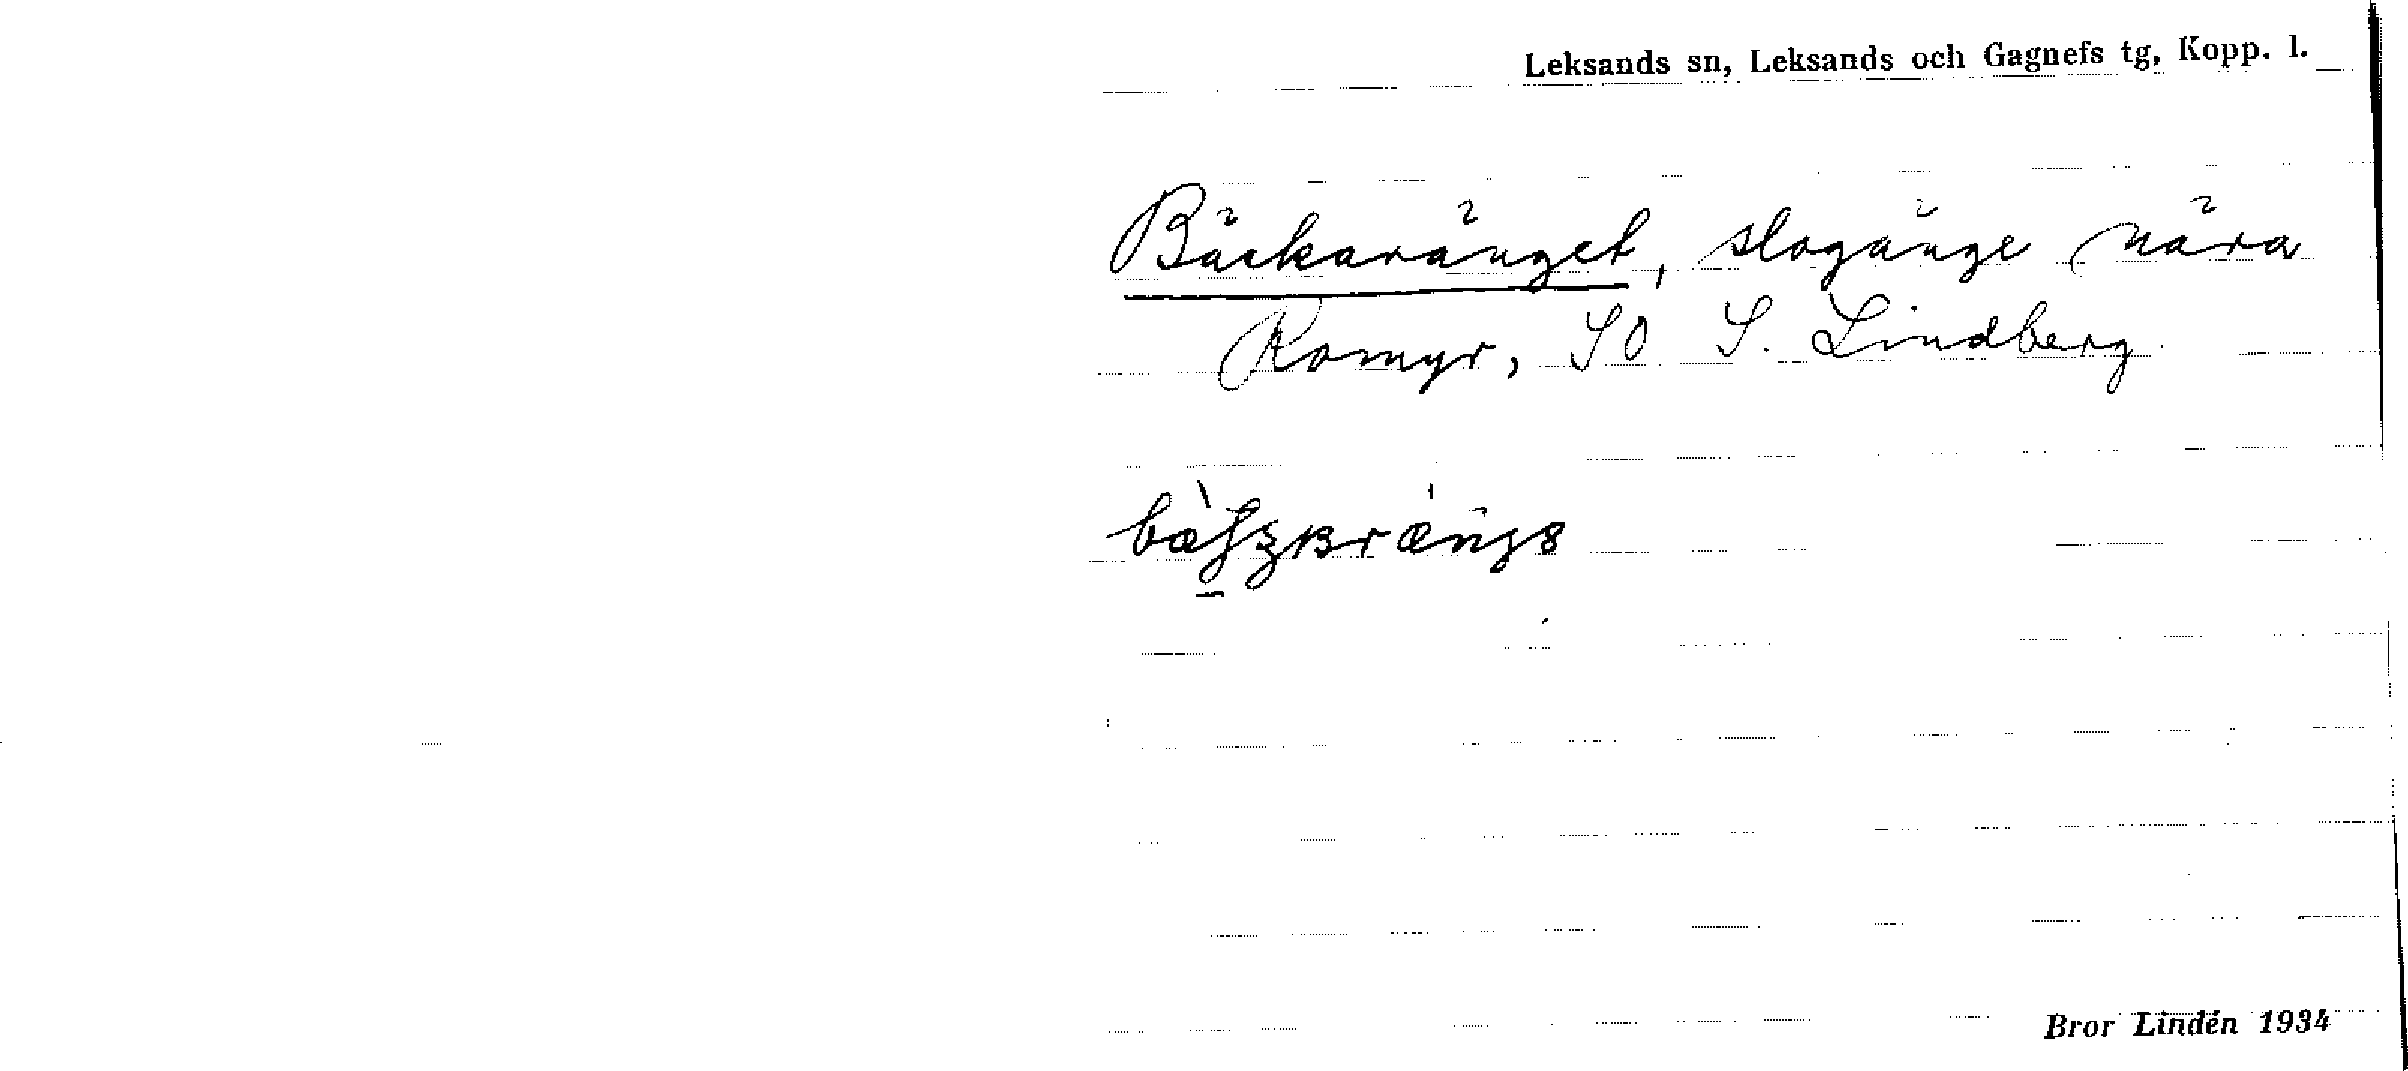 Leksands sn, Leksands och Gagnefs tg, Kopp. l.
Bäckaränget, slogänge nära
Romyr, SO S. Lindberg.
Bror Lindén 1934